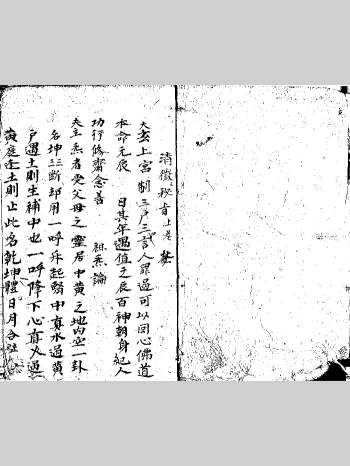 清微秘旨上卷
太玄上宮制三戶三言人罪過可以回心佛道
本命元辰 日其年遇值之辰百神朝身紀人
功行修齋念善 祖炁論
夫主炁者受父母之靈居中黃之地內空一卦
名坤三斷却用一呼升起腎中真水過黃
戶遇土則生補中也一呼降下心直火過
黃庭逢土則止此名乾坤體日月合